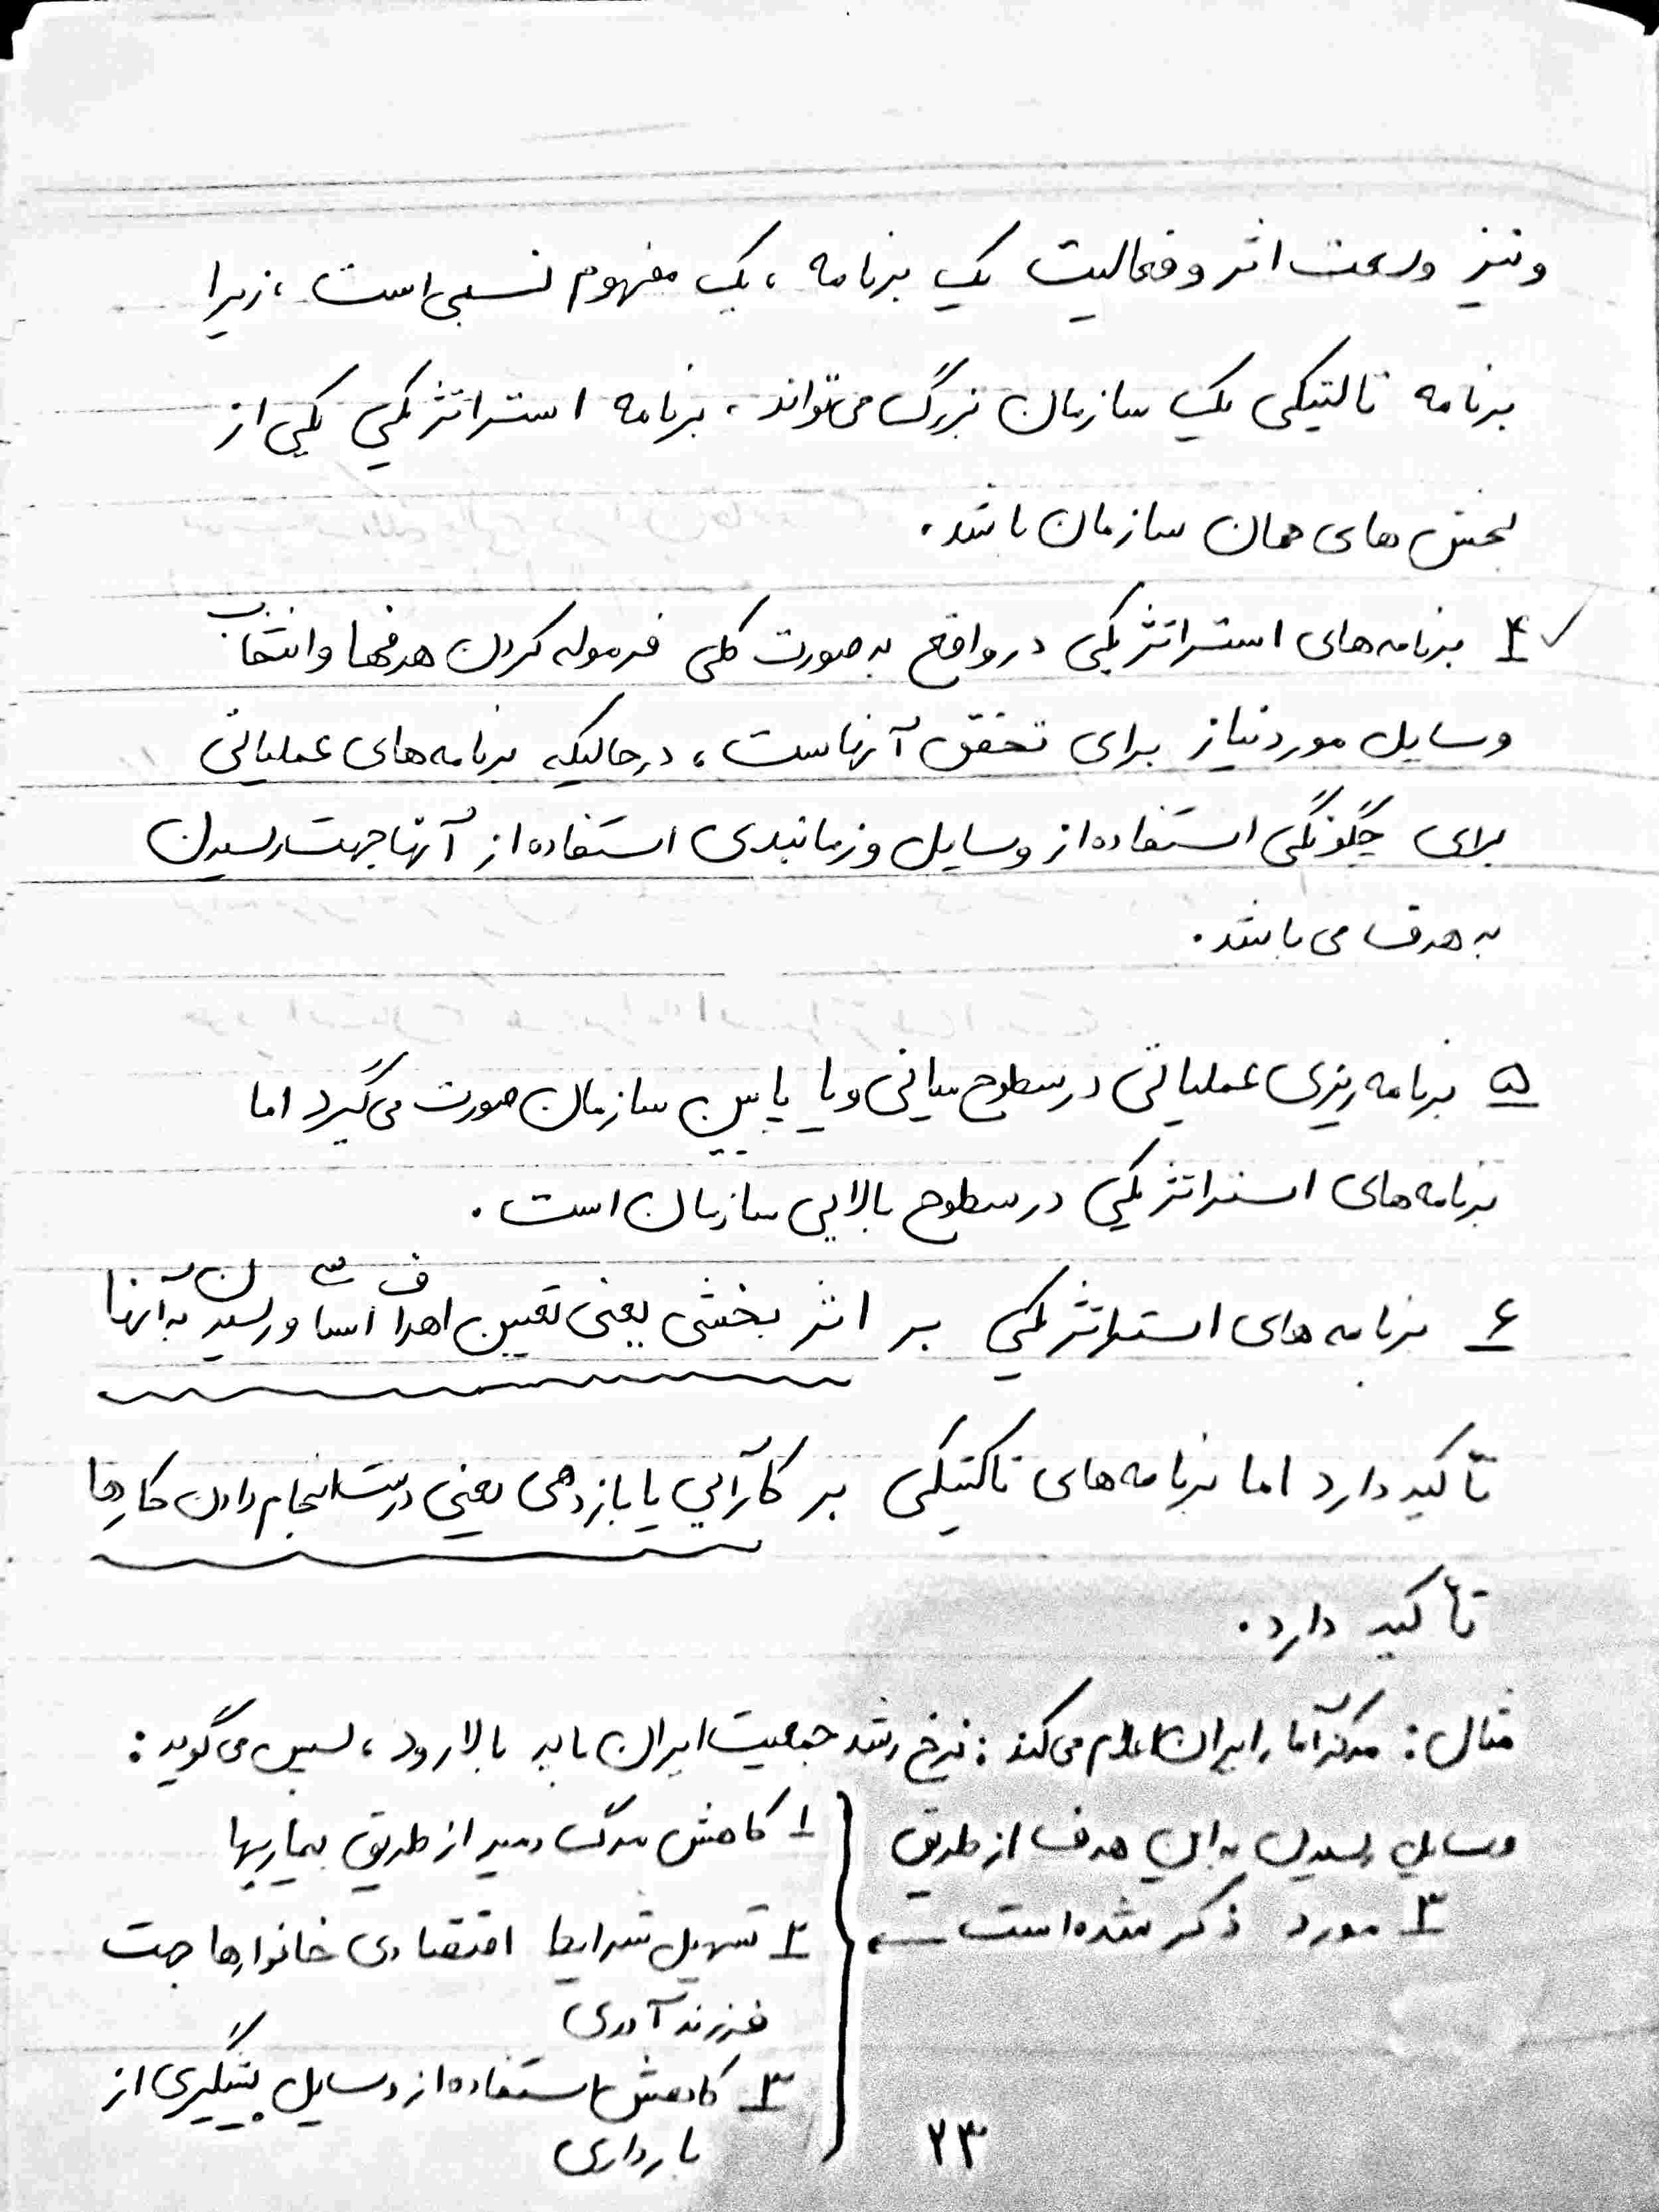 و نیز وسعت اثر و فعالیت یک برنامه ، یک مفهوم نسبی است ، زیرا
برنامه تاکتیکی یک سازمان بزرگ می‌تواند ، برنامه استراتژیکی یکی از
بخش های همان سازمان باشد .
۴ـ برنامه‌های استراتژیکی در واقع به صورت کلی فرموله کردن هدفها و انتخاب
وسایل مورد نیاز برای تحقق آنهاست ، در حالیکه برنامه‌های عملیاتی
برای چگونگی استفاده از وسایل و زمانبندی استفاده از آنها جهت رسیدن
به هدف می باشد .
۵ـ برنامه ریزی عملیاتی در سطوح میانی و یا پایین سازمان صورت می گیرد اما
برنامه‌های استراتژیکی در سطوح بالایی سازمان است .
۶ـ برنامه های استراتژیکی بر اثر بخشی یعنی تعیین اهداف اساسی و رسیدن به آنها
تأکید دارد اما برنامه‌های تاکتیکی بر کارآیی یا بازدهی یعنی درست انجام دادن کارها
تأکید دارد .
مثال : مرکز آمار ایران اعلام می کند : نرخ رشد جمعیت ایران باید بالا رود ، سپس می گوید :
وسایل رسیدن به این هدف از طریق
۳ـ مورد ذکر شده است ←
۱ـ کاهش مرگ و میر از طریق بیماریها
۲ـ تسهیل شرایط اقتصادی خانوارها جهت
فرزند آوری
۳ـ کاهش استفاده از وسایل پیشگیری از
بارداری
۲۳